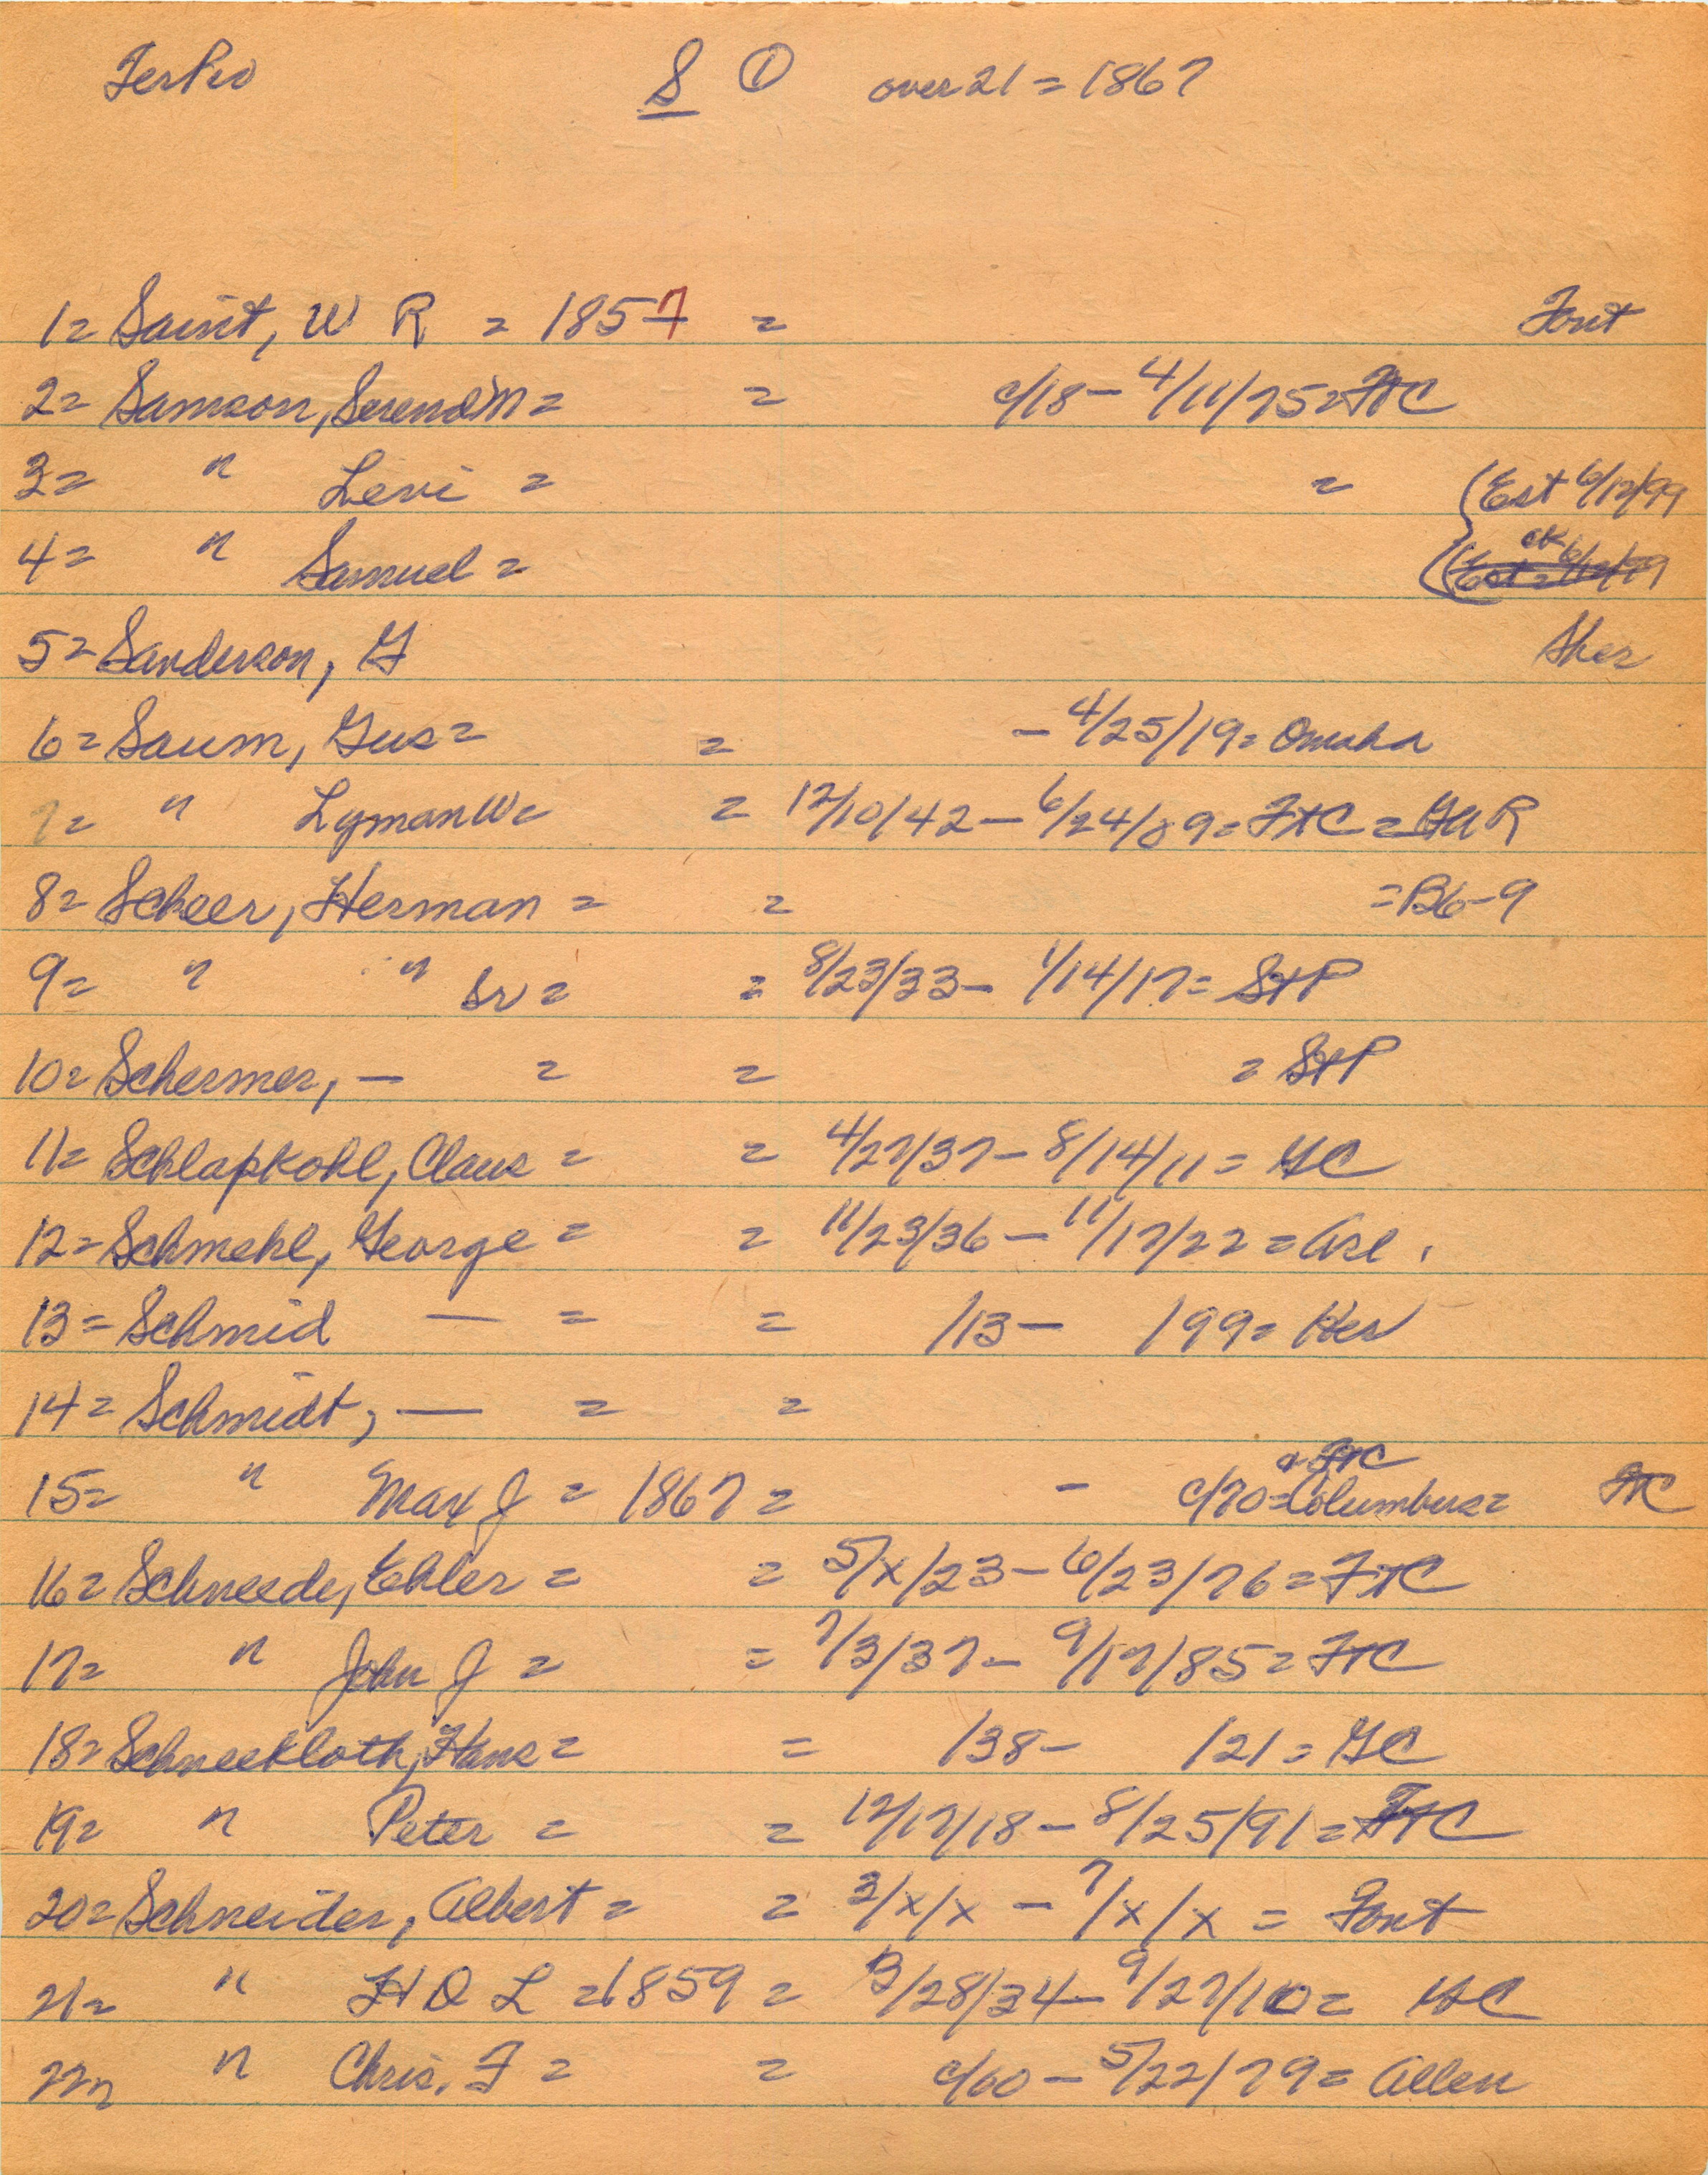 TerPio S ① over 21 = 1867
1= Saint, W R = 1857 = Font
2= Samson, SerenoM = = c/18 - 4/11/75 = FtC
3= " Levi = = (Est 6/12/99
4= " Samuel = ck
5= Sanderson, G Sher
6= Saum, Gus = = - 4/25/19 = Omaha
7= " LymanW = = 12/10/42 - 6/24/89 = FtC = GAR
8= Scheer, Herman = = = B6-9
9= " " Sr = = 8/23/33 - 1/14/17 = StP
10= Schermer, - = = = StP
11= Schlapkohl, Claus = = 4/27/37 - 8/14/11 = GC
12= Schmehl, George = = 11/23/36 - 11/17/22 = Arl.
13= Schmid - = = /13 - /99 = Her
14= Schmidt, - = =
15= " Max J = 1867 = - c/70 = Columbus = FtC
16= Schneede, Ehler = = 5/x/23 - 6/23/76 = FtC
17= " John J = = 7/3/37 - 9/17/85 = FtC
18= Schneekloth, Hans = = /38 - /21 = GC
19= " Peter = = 12/17/18 - 8/25/91 = FtC
20= Schneider, Albert = = 3/x/x - 7/x/x = Font
21= " H D L = 1859 = 3/28/34 - 9/27/10 = GC
22= " Chris. F = = c/60 - 5/22/79 = Allen